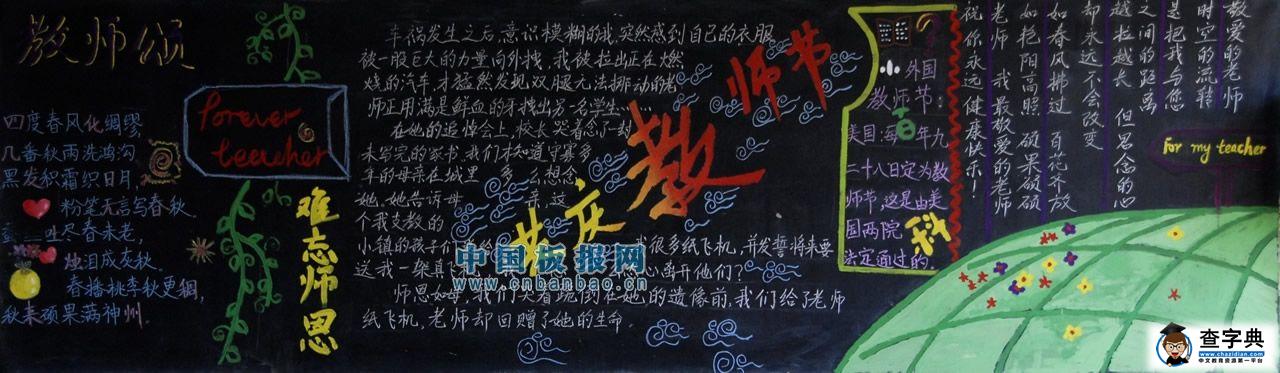 教师颂
四度春风化绸缪,
几番秋雨洗鸿沟
黑发积霜织日月,
粉笔无言写春秋,
吐尽春未老,
烛泪成灰秋.
春播桃李秋更稠,
秋来硕果满神州.
forever
teacher
难忘师恩
车祸发生之后,意识模糊的我,突然感到自己的衣服
被一股巨大的力量向外拽,我被拉出正在燃
烧的汽车,才猛然发现双腿无法挪动的老
师正用满是鲜血的牙拽出另一名学生……
在她的追悼会上,校长哭着念了一封
未写完的家书,我们才知道守寡多
年的母亲在城里 多么想念
她,她告诉母亲,这
个我支教的
小镇的孩子们 我很多纸飞机,并发誓将来要
送我一架真 心离开他们?
师恩如母,我们哭着跪倒在她的遗像前,我们给了老师
纸飞机,老师却回赠了她的生命.
共庆教师节
中国板报网
www.cnbanbao.cn
小百科
外国
教师节:
美国:每年九
二十八日定为教
师节,这是由美
国两院
法定通过的.
敬爱的老师
时空的流转
是把我与您
之间的距离
越拉越长 但思念的心
却永远不会改变
如春风拂过 百花齐放
如艳阳高照 硕果硕硕
老师 我最敬爱的老师
祝你永远健康快乐!
For my teacher
查字典
www.chazidian.com
中文教育资源第一平台